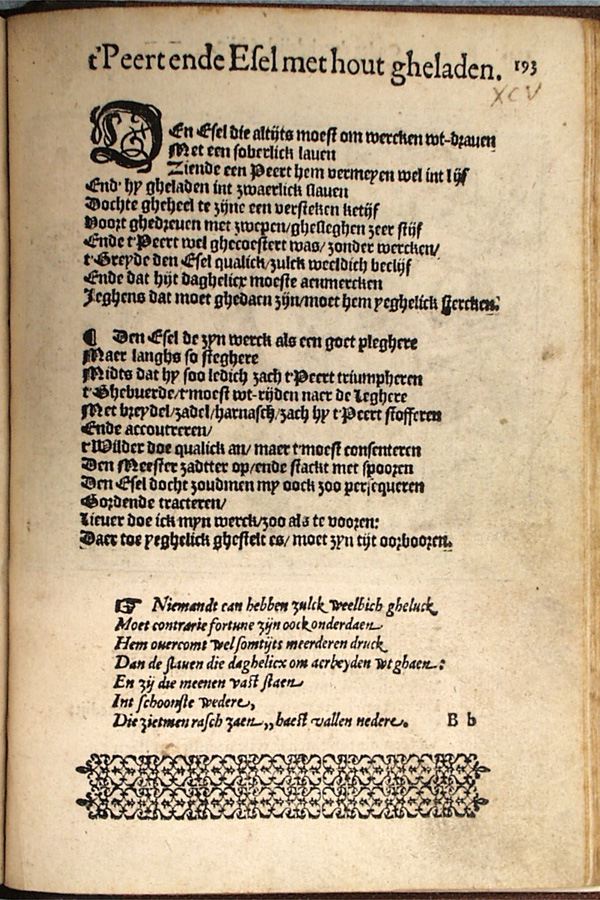 t'Peert ende Esel met hout gheladen. 193
XCV
DEn Esel die altijts moest om wercken wt-draven
Met een soberlick laven
Ziende een Peert hem vermeyen wel int lijf
End' hy gheladen int zwaerlick slaven
Dochte gheheel te zijne een versteken ketijf
Voort ghedreven met zwepen/ghesleghen zeer stijf
Ende t'Peert wel ghecoestert was/ zonder wercken/
t'Greyde den Esel qualick/zulck weeldich beclijf
Ende dat hijt daghelicx moeste aenmercken
Jeghens dat moet ghedaen zijn/moet hem yeghelick stercken.
¶ Den Esel de zyn werck als een goet pleghere
Maer langhs so steghere
Midts dat hy soo ledich zach t'Peert triumpheren
t'Ghebuerde/t'moest wt-rijden naer de Leghere
Met breydel/zadel/harnasch/zach hy t'Peert stofferen
Ende accoutreren/
t'Wilder doe qualick an/ maer t'moest consenteren
Den Meester zadtter op/ende stackt met spooren
Den Esel docht zoudmen my oock zoo persequeren
Gordende tracteren/
Liever doe ick myn werck/zoo als te vooren:
Daer toe yeghelick ghestelt es/ moet zyn tijt oorbooren.
☞ Niemandt can hebben zulck weelbich gheluck
Moet contrarie fortune zijn oock onderdaen
Hem overcomt wel somtijts meerderen druck
Dan de slaven die daghelicx om aerbeyden wt ghaen:
En zij die meenen vast staen
Int schoonste wedere,
Die zietmen rasch zaen,, haest vallen nedere. B b